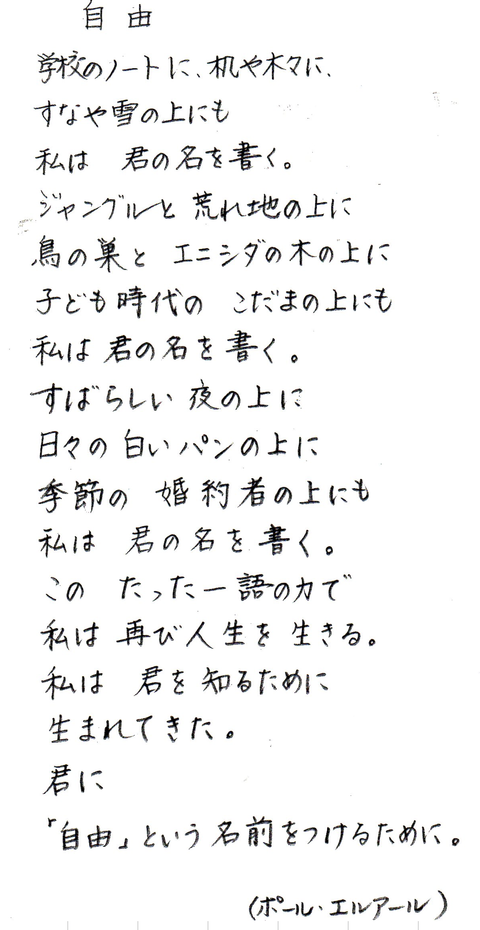 自由
学校のノートに、机や木々に、
すなや雪の上にも
私は 君の名を書く。
ジャングルと 荒れ地の上に
鳥の巣と エニシダの木の上に
子ども時代の こだまの上にも
私は 君の名を書く。
すばらしい 夜の上に
日々の 白いパンの上に
季節の 婚約者の上にも
私は 君の名を書く。
この たった一語の力で
私は 再び人生を 生きる。
私は 君を 知るために
生まれてきた。
君に
「自由」という名前をつけるために。
(ポール・エルアール)